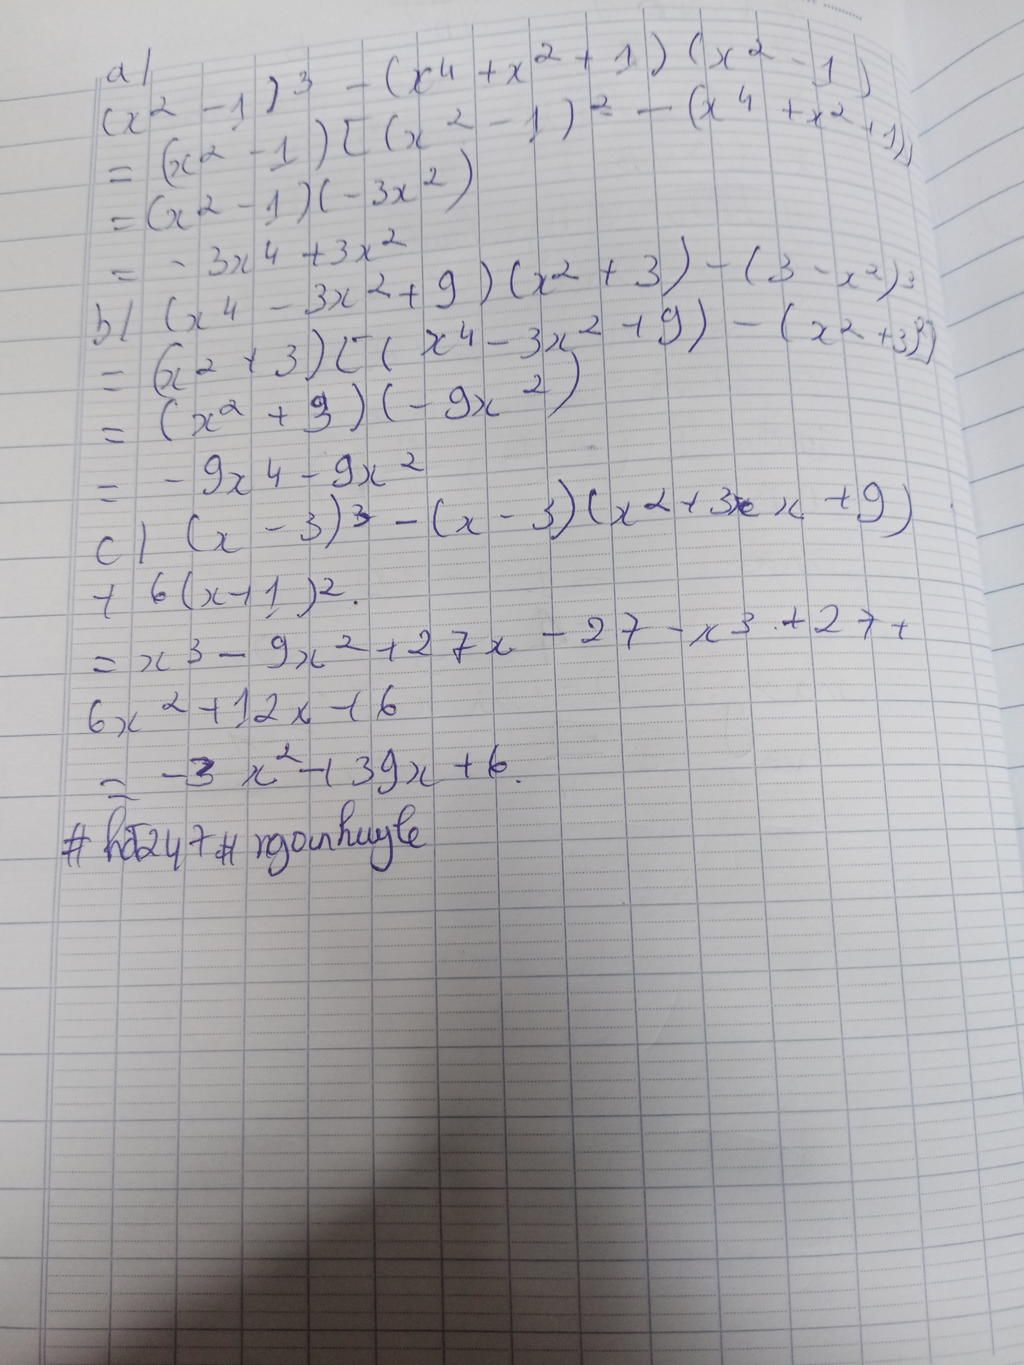 a/
(x² - 1)³ - (x⁴ + x² + 1)(x² - 1)
= (x² - 1)[(x² - 1)² - (x⁴ + x² + 1)]
= (x² - 1)(-3x²)
= -3x⁴ + 3x²
b/ (x⁴ - 3x² + 9)(x² + 3) - (3 - x²)³
= (x² + 3)[(x⁴ - 3x² + 9) - (x² + 3)²]
= (x² + 3)(-9x²)
= -9x⁴ - 9x²
c/ (x - 3)³ - (x - 3)(x² + 3x + 9)
+ 6(x + 1)².
= x³ - 9x² + 27x - 27 - x³ + 27 +
6x² + 12x + 6
= -3x² + 39x + 6.